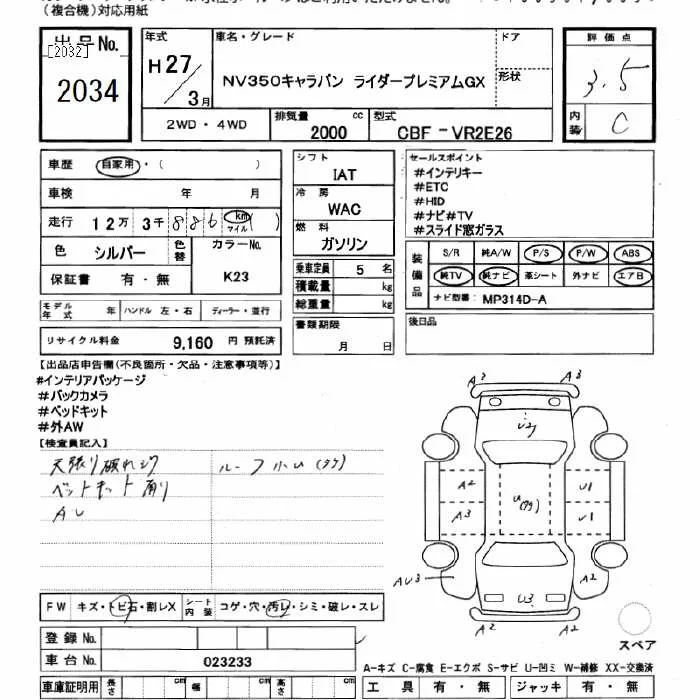 (複合機)対応用紙
出品No.
[2032]
2034
年式
H27/3月
車名・グレード
NV350キャラバン ライダープレミアムGX
ドア
形状
評価点
3.5
内装
C
2WD・4WD
排気量
2000
cc
型式
CBF-VR2E26
車歴
自家用・( )
車検 年 月
走行 12万 3千 886 km マイル ( )
色 シルバー
色替
カラーNo.
K23
保証書 有・無
モデル年式 年
ハンドル 左・右
ディーラー・並行
リサイクル料金 9,160 円 預託済
シフト
IAT
冷房
WAC
燃料
ガソリン
乗車定員 5 名
積載量 kg
総重量 kg
書類期限
月 日
セールスポイント
#インテリキー
#ETC
#HID
#ナビ#TV
#スライド窓ガラス
装備品
S/R 純A/W P/S P/W ABS
純TV 純ナビ 革シート 外ナビ エアB
ナビ型番: MP314D-A
後日品
【出品店申告欄(不良箇所・欠品・注意事項等)】
#インテリアパッケージ
#バックカメラ
#ベッドキット
#外AW
【検査員記入】
天張り破れシワ
ルーフ小U(タテ)
ベットキット有り
AU
A3
A3
U2
A2
U1
U
A3
U1
AU3
A2
U3
A2
A2
スペア
FW キズ・トビ石・割レX
シート内装 コゲ・穴・汚レ・シミ・破レ・スレ
登録No.
車台No. 023233
車庫証明用 長さ cm 幅 cm 高さ cm
A-キズ C-腐食 E-エクボ S-サビ U-凹ミ W-補修 XX-交換済
工具 有・無 ジャッキ 有・無